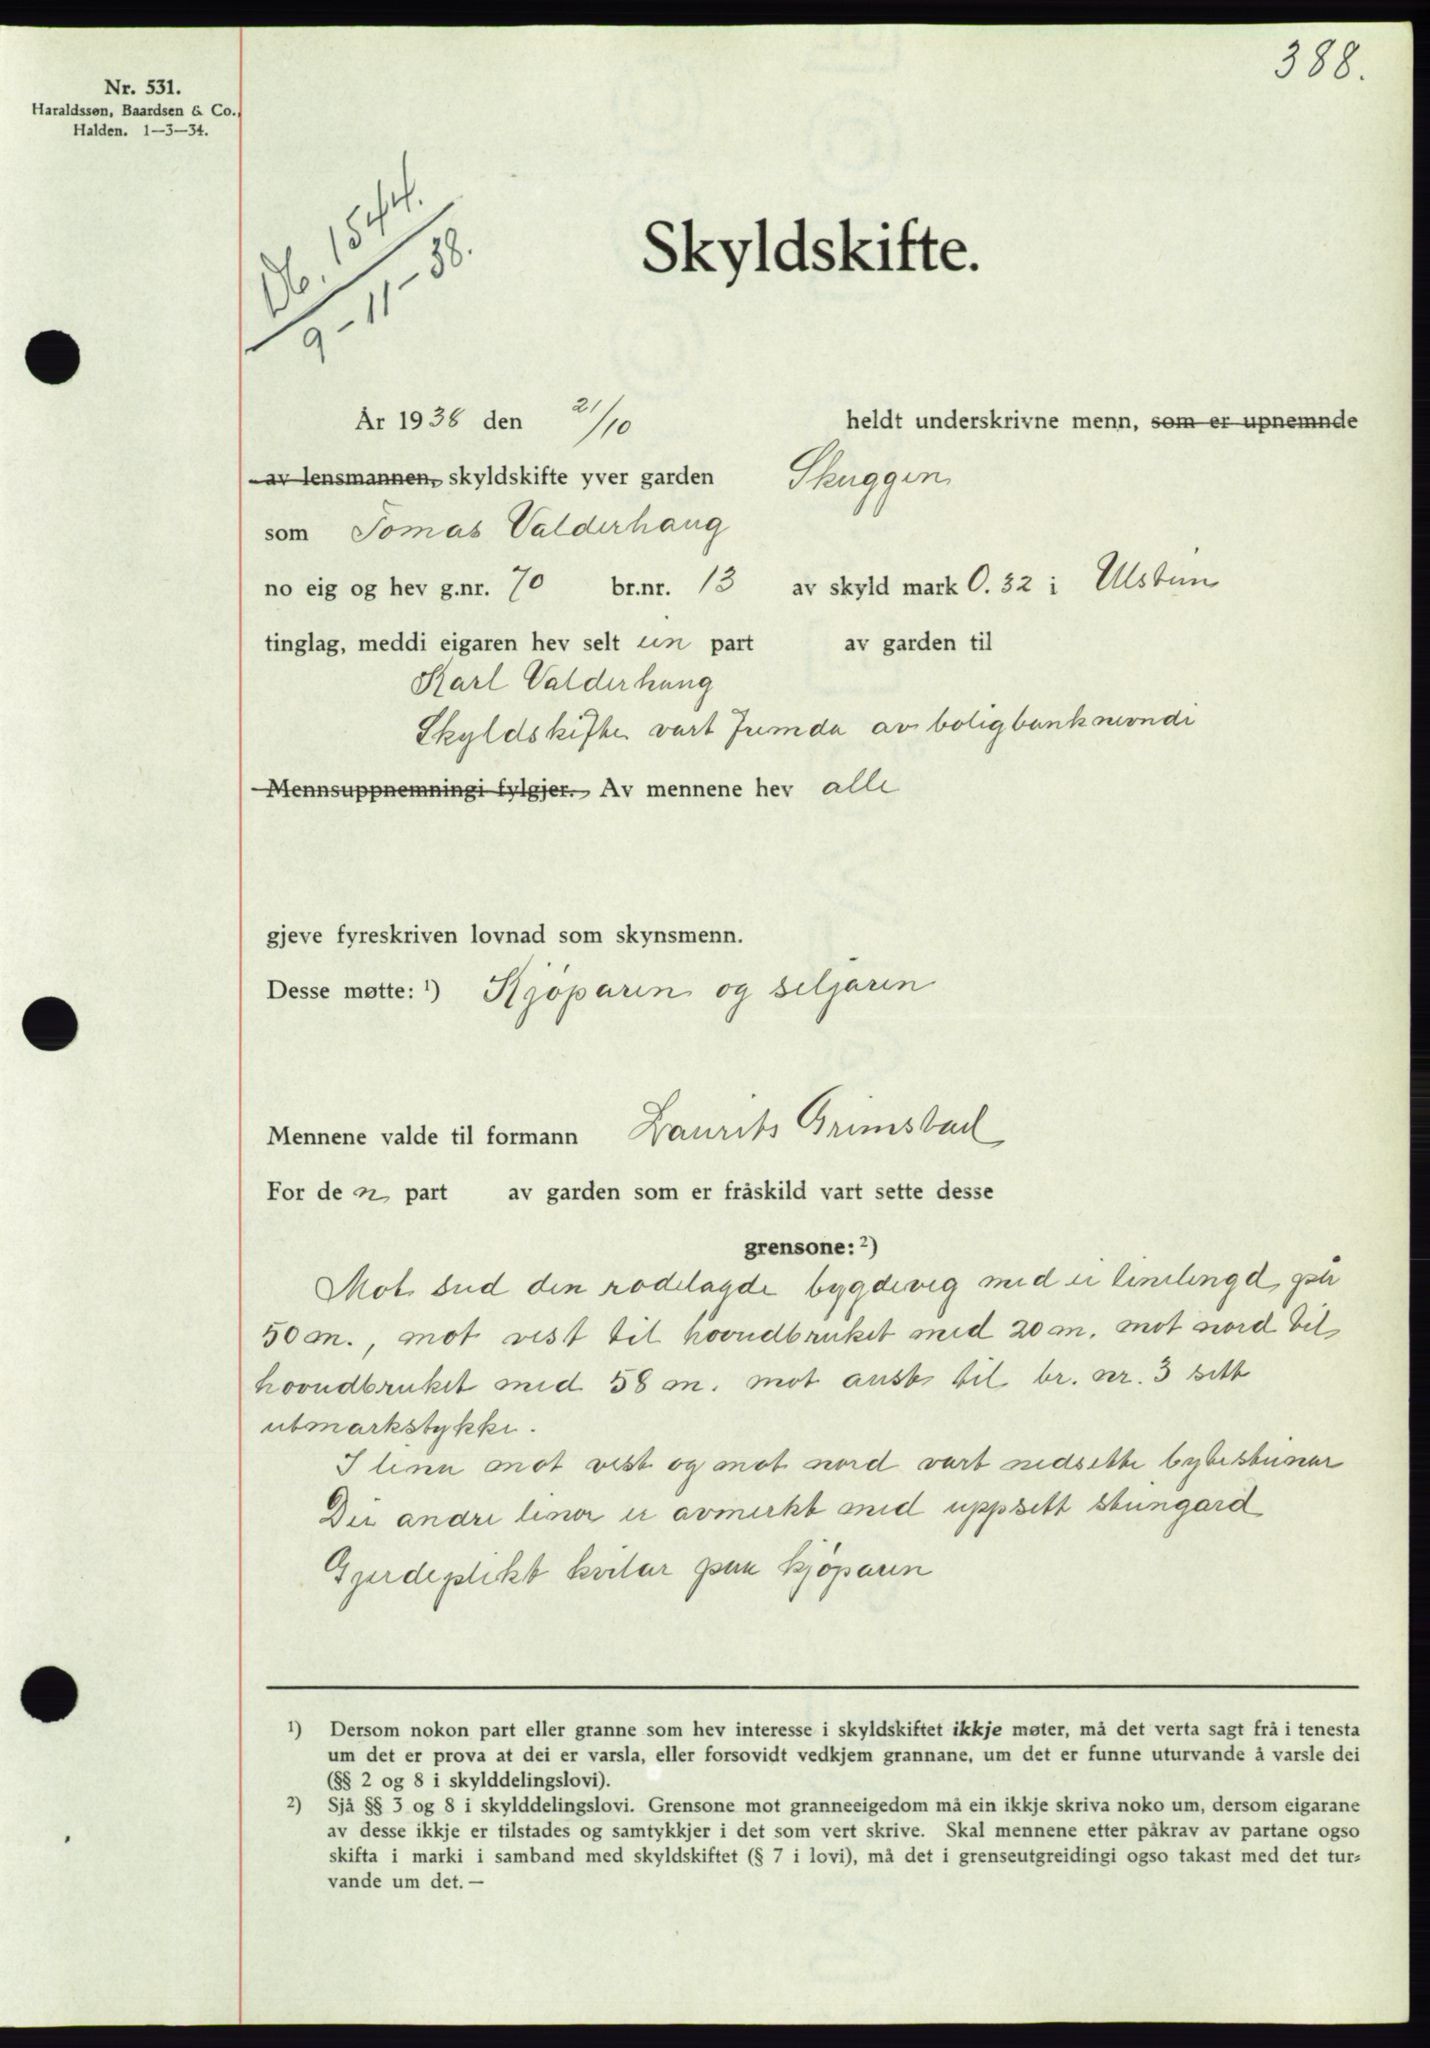 388.
Nr. 531.
Haraldssøn, Baardsen & Co.,
Halden. 1—3—34.
Db. 1544.
9-11-38.
Skyldskifte.
År 1938 den 21/10 heldt underskrivne menn, som er upnemnde
av lensmannen, skyldskifte yver garden Skuggen
som Tomas Valderhaug
no eig og hev g.nr. 70 br.nr. 13 av skyld mark 0.32 i Ulstein
tinglag, meddi eigaren hev selt ein part av garden til
Karl Valderhaug
Skyldskifte vart fremda av boligbanknevndi
Mennsuppnemningi fylgjer. Av mennene hev alle
gjeve fyreskriven lovnad som skynsmenn.
Desse møtte: ¹) Kjöparen og seljaren
Mennene valde til formann Laurits Grimstad
For de n part av garden som er fråskild vart sette desse
grensone: ²)
Mot sud den rodelagde bygdeveg med ei linelengd på
50 m., mot vest til hovudbruket med 20 m. mot nord til
hovudbruket med 58 m. mot aust til br. nr. 3 sitt
utmarkstykke.
I lina mot vest og mot nord vart nedsette bytesteinar
Dei andre linor er avmerkt med uppsett steingard
Gjerdeplikt kvilar paa kjöparen
¹) Dersom nokon part eller granne som hev interesse i skyldskiftet ikkje møter, må det verta sagt frå i tenesta
um det er prova at dei er varsla, eller forsovidt vedkjem grannane, um det er funne uturvande å varsle dei
(§§ 2 og 8 i skylddelingslovi).
²) Sjå §§ 3 og 8 i skylddelingslovi. Grensone mot granneeigedom må ein ikkje skriva noko um, dersom eigarane
av desse ikkje er tilstades og samtykkjer i det som vert skrive. Skal mennene etter påkrav av partane ogso
skifta i marki i samband med skyldskiftet (§ 7 i lovi), må det i grenseutgreidingi ogso takast med det tur-
vande um det. —